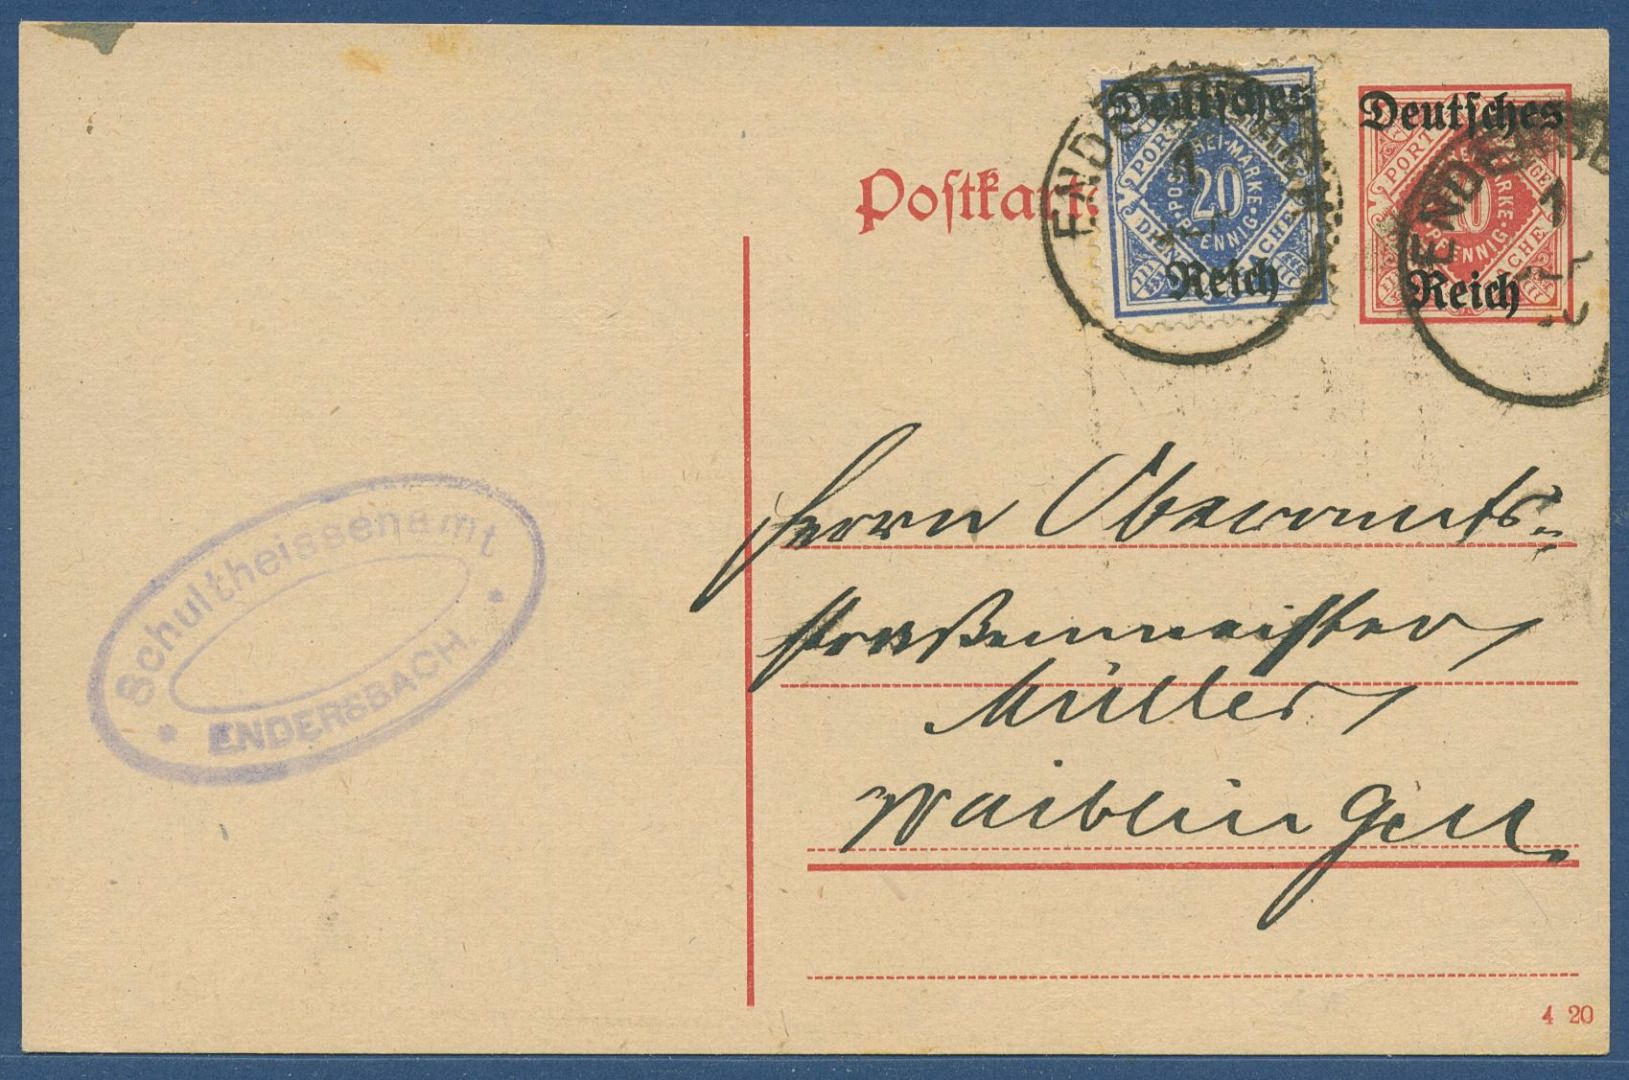 Postkarte
Deutsches
PORT
FREI-MARKE
20
POST PFENNIG
DIEN ACHE
Reich
Deutsches
PORT
GE
MARKE
PFENNIG
CHE
Reich
ENDERSBACH
1
ENDERSB
1
Herrn Oberamts-
straßenmeister
Müller
Waiblingen
Schultheissenamt
* ENDERSBACH. *
4 20